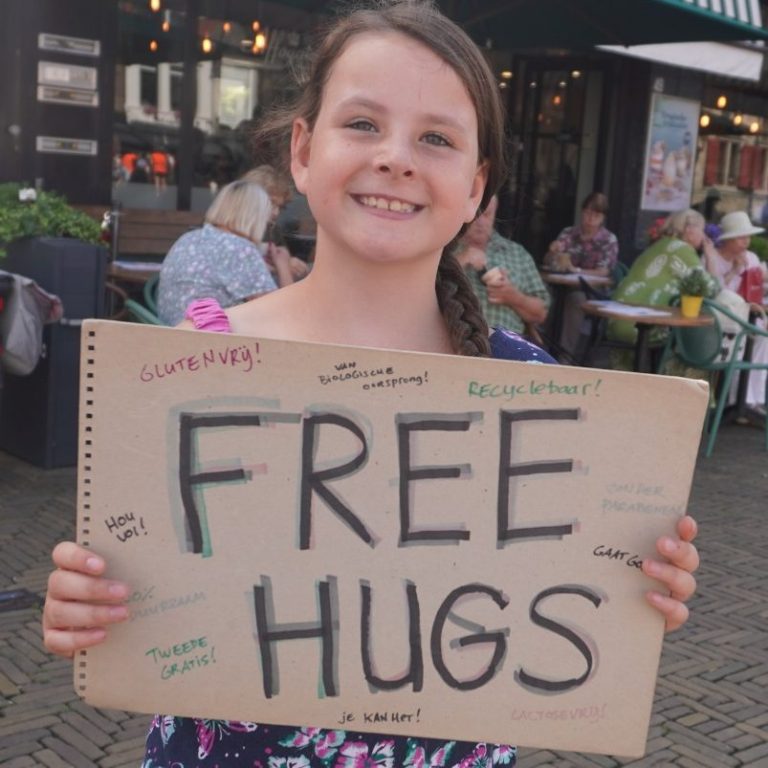 GLUTENVRIJ!
VAN
BIOLOGISCHE
OORSPRONG!
RECYCLEbaar!
FREE
ZONDER
PARABENEN
HOU
VOL!
GAAT GO
HUGS
DUURZAAM
TWEEDE
GRATIS!
je KAN HET!
LACTOSEVRIJ!